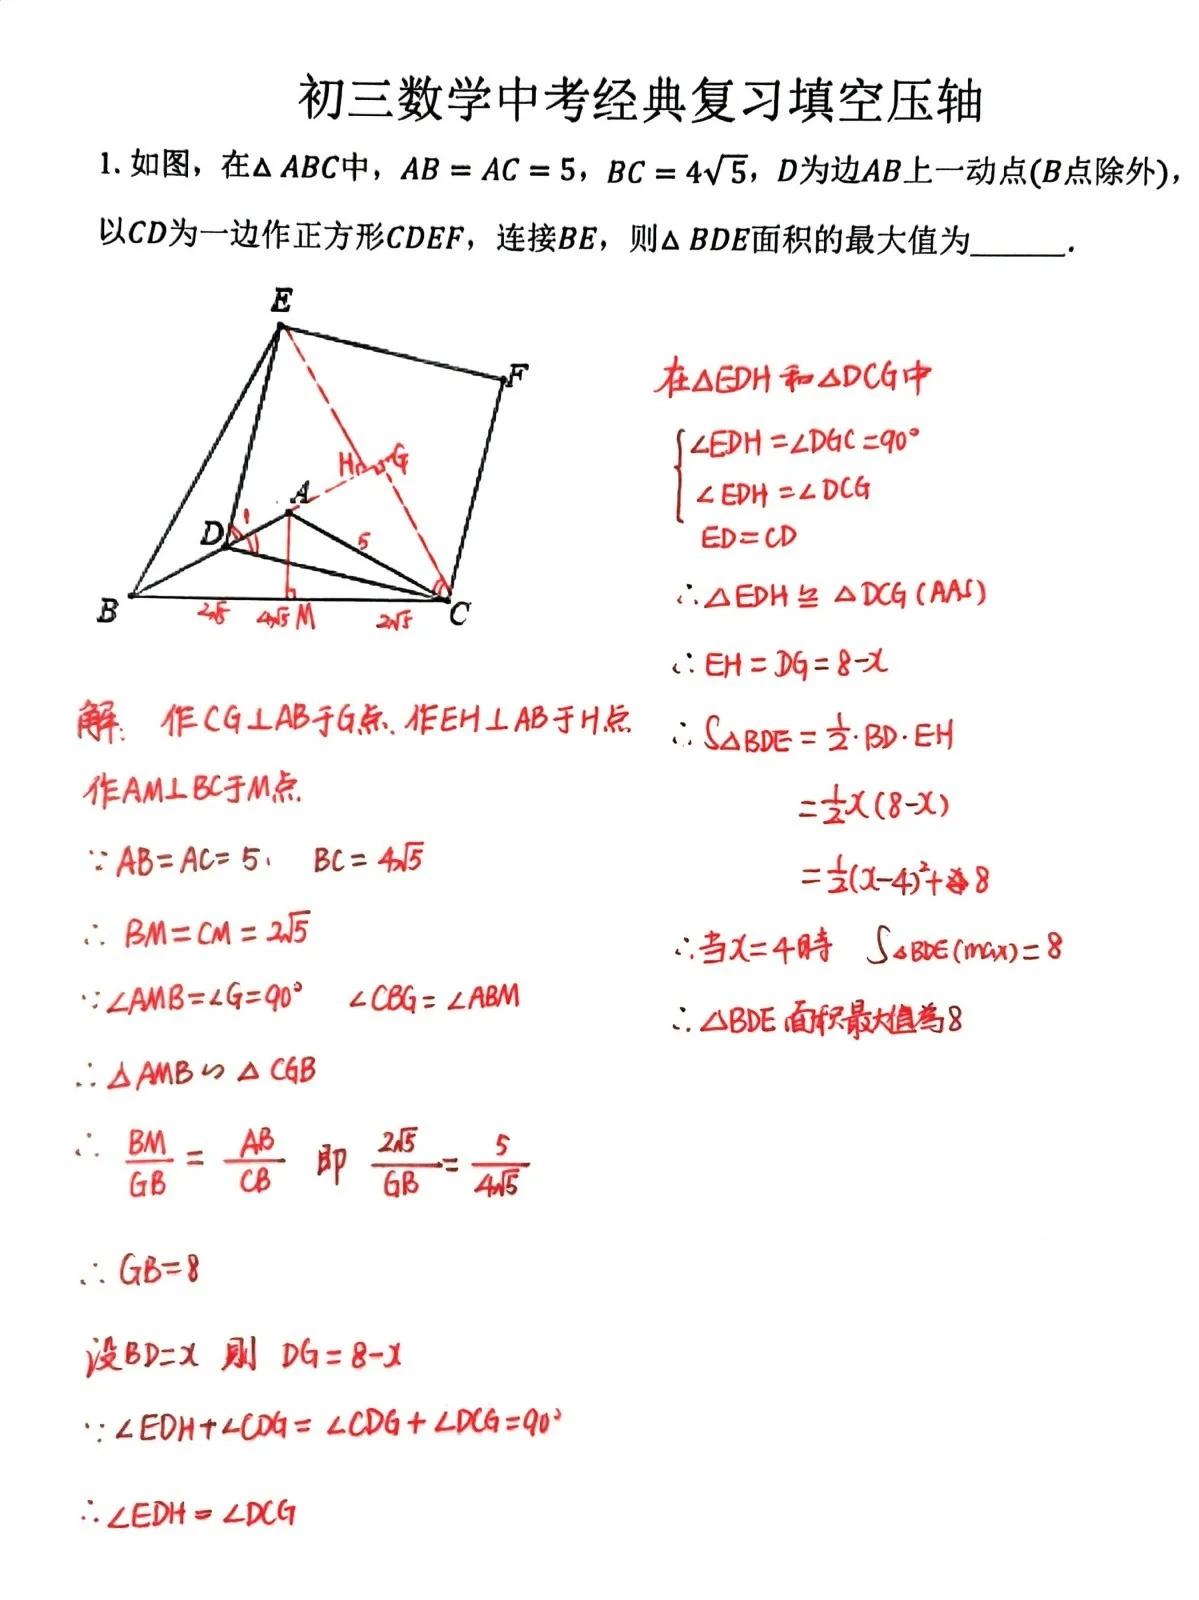 初三数学中考经典复习填空压轴
1. 如图，在△ ABC中，AB = AC = 5，BC = 4√5，D为边AB上一动点(B点除外)，
以CD为一边作正方形CDEF，连接BE，则△ BDE面积的最大值为______.
E
F
H G
A
1
D
5
B
C
2√5 4√5 M 2√5
解: 作CG⊥AB于G点、作EH⊥AB于H点
作AM⊥BC于M点.
∵ AB=AC=5, BC=4√5
∴ BM=CM=2√5
∵∠AMB=∠G=90° ∠CBG=∠ABM
∴△AMB∽△CGB
∴ BM/GB = AB/CB 即 2√5/GB = 5/4√5
∴ GB=8
设BD=x 则 DG=8-x
∵∠EDH+∠CDG=∠CDG+∠DCG=90°
∴∠EDH=∠DCG
在△EDH和△DCG中
∠EDH=∠DGC=90°
∠EDH=∠DCG
ED=CD
∴△EDH≌△DCG(AAS)
∴EH=DG=8-x
∴S△BDE=1/2·BD·EH
=1/2x(8-x)
=1/2(x-4)²+8
∴当x=4時 S△BDE(max)=8
∴△BDE面积最大值為8